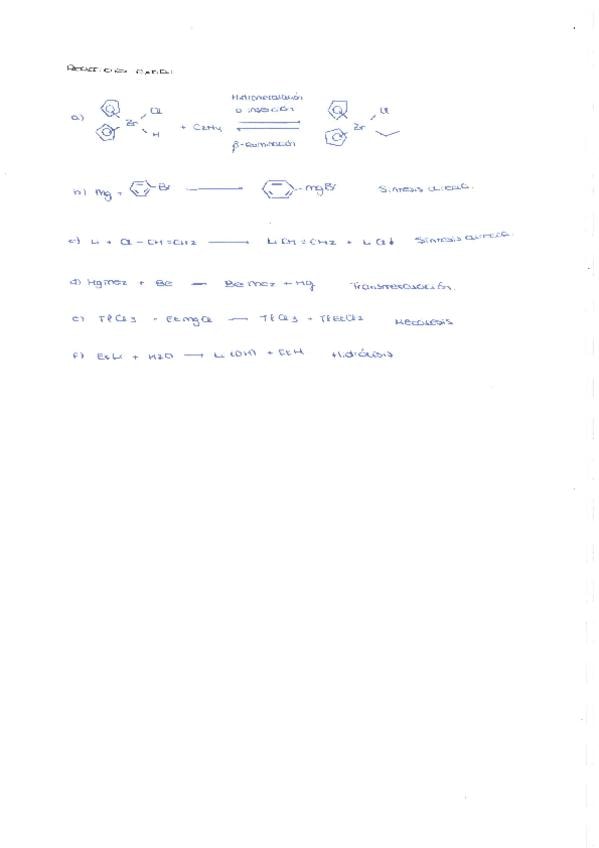 a) Cl Zr H + C2H4 Hidrometalación o inserción β-eliminación Cl Zr
b) Mg + Br → MgBr Síntesis directa.
c) Li + Cl-CH=CH2 → LiCH=CH2 + LiCl↓ Síntesis directa.
d) HgMe2 + Be → BeMe2 + Hg Transmetalación.
e) TlCl3 EtMgCl → + TlEtCl2 Metátesis
f) EtLi + H2O → Li(OH) + EtH Hidrólisis